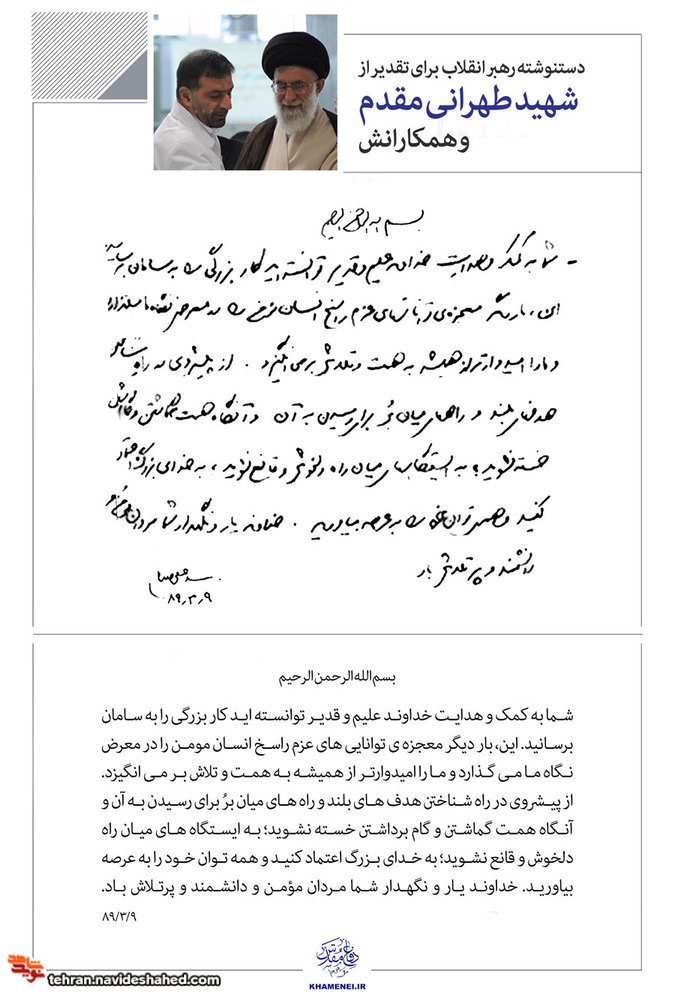 دستنوشته رهبر انقلاب برای تقدیر از
شهید طهرانی مقدم
و همکارانش
بسم الله الرحمن الرحیم
- شما به کمک و هدایت خداوند علیم و قدیر توانسته اید کار بزرگی را به سامان برسانید
این، بار دیگر معجزه‌ی توانائیهای عزم راسخ انسان مؤمن را در معرض نگاه ما میگذارد
و ما را امیدوارتر از همیشه به همت و تلاش بر می انگیزد. از پیشروی در راه شناختن
هدفهای بلند و راههای میان بُر برای رسیدن به آن و آنگاه همت گماشتن و گام برداشتن
خسته نشوید؛ به ایستگاههای میان راه دلخوش و قانع نشوید، به خدای بزرگ اعتماد
کنید و همه‌ی توان خود را به عرصه بیاورید. خداوند یار و نگهدار شما مردان مؤمن و
دانشمند و پرتلاش باد
۸۹/۳/۹
بسم الله الرحمن الرحیم
شما به کمک و هدایت خداوند علیم و قدیر توانسته اید کار بزرگی را به سامان
برسانید. این، بار دیگر معجزه ی توانایی های عزم راسخ انسان مومن را در معرض
نگاه ما می گذارد و ما را امیدوارتر از همیشه به همت و تلاش بر می انگیزد.
از پیشروی در راه شناختن هدف های بلند و راه های میان برُ برای رسیدن به آن و
آنگاه همت گماشتن و گام برداشتن خسته نشوید؛ به ایستگاه های میان راه
دلخوش و قانع نشوید؛ به خدای بزرگ اعتماد کنید و همه توان خود را به عرصه
بیاورید. خداوند یار و نگهدار شما مردان مؤمن و دانشمند و پرتلاش باد.
۸۹/۳/۹
KHAMENEI.IR
نوید شاهد
tehran.navideshahed.com